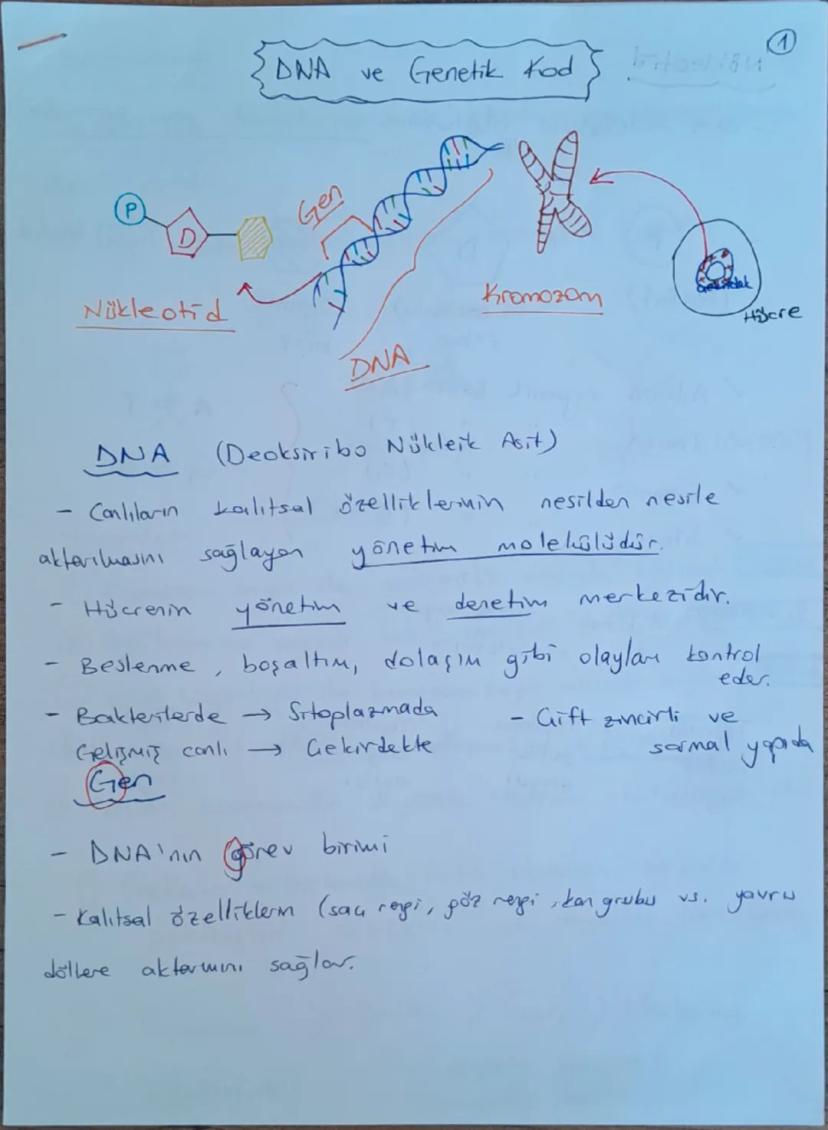 1
DNA ve Genetik Kod
P
D
Gen
Nükleotid
DNA
Kromozom
Çekirdek
Hücre
DNA (Deoksiribo Nükleik Asit)
- Canlıların kalıtsal özelliklerinin nesilden nesile
aktarılmasını sağlayan yönetim molekülüdür.
- Hücrenin yönetim ve denetim merkezidir.
- Beslenme, boşaltım, dolaşım gibi olayları kontrol
eder.
- Bakterilerde → Sitoplazmada
Gelişmiş canlı → Çekirdekte
- Çift zincirli ve
sarmal yapıda
Gen
- DNA'nın görev birimi
- Kalıtsal özelliklerin (saç rengi, göz rengi, kan grubu vs. yavru
döllere aktarımını sağlar.